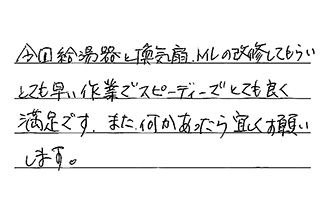 今回給湯器と換気扇、MLの改修してもらい
とても早い作業でスピーディーでとても良く
満足です。また何かあったら宜しくお願い
します。